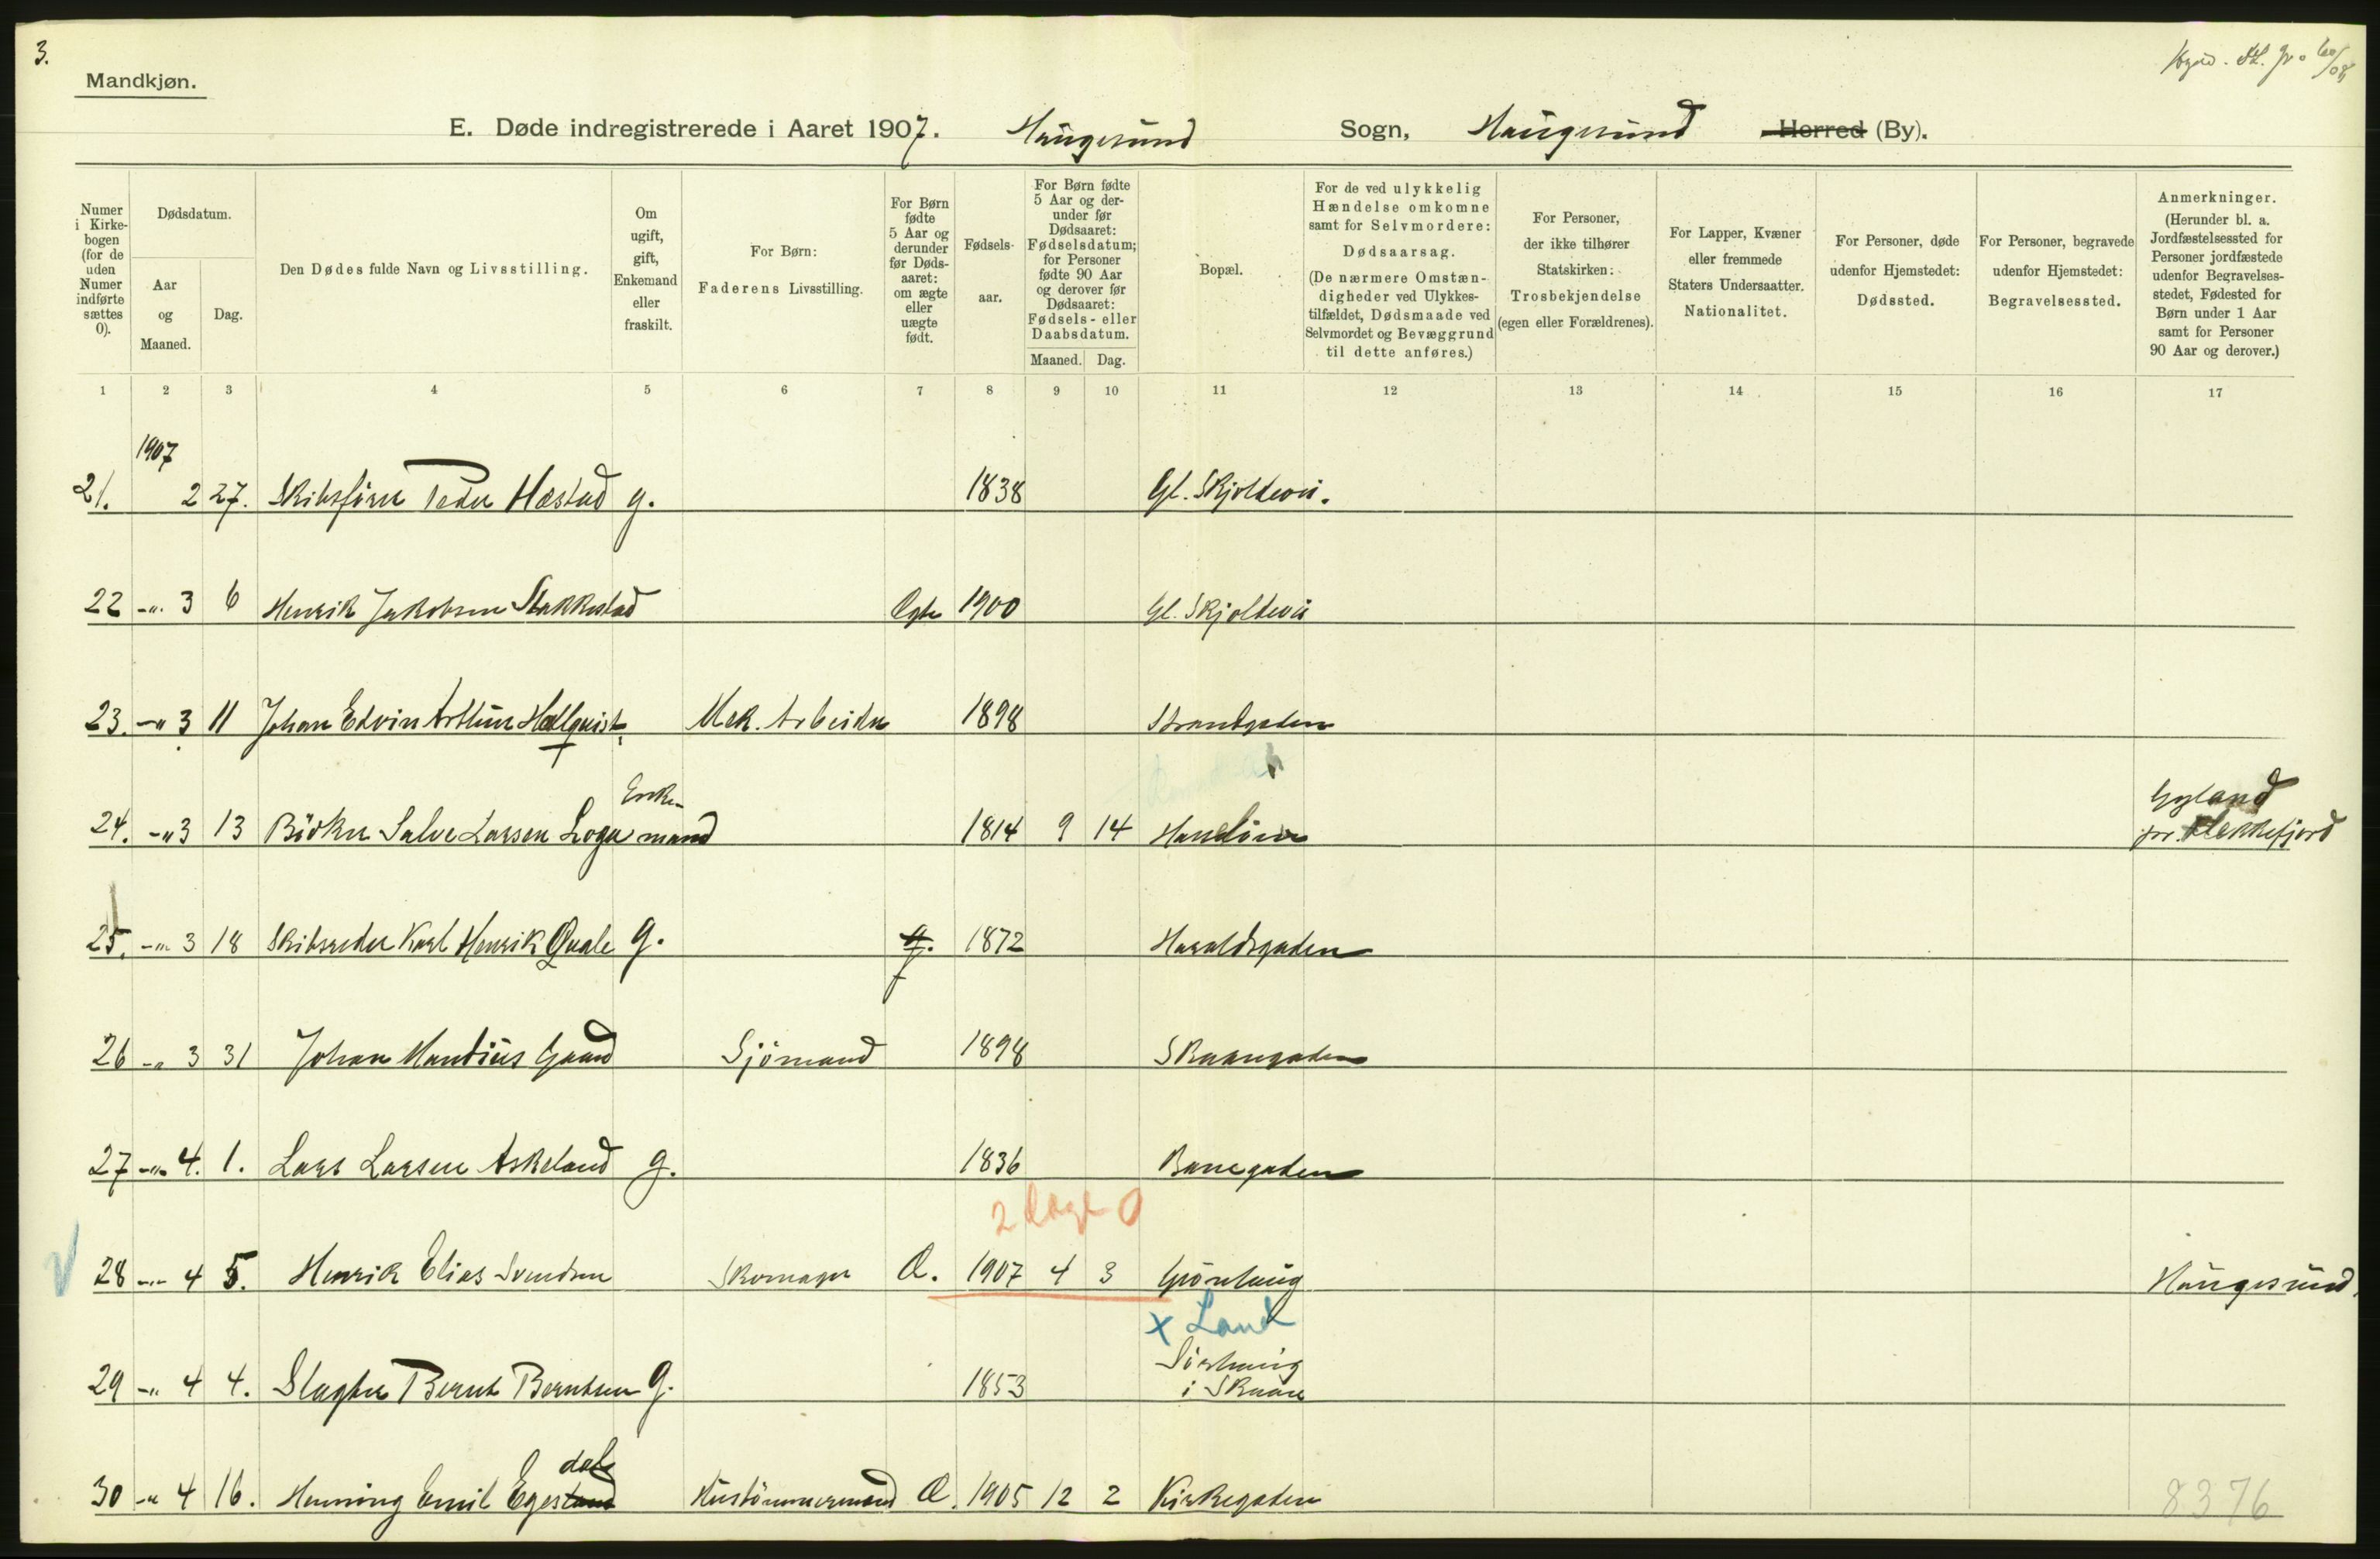 3.
Mandkjøn.
E. Døde indregistrerede i Aaret 1907. Haugesund Sogn, Haugesund Herred (By).
Numer i Kirkebogen (for de uden Numer indførte sættes 0).
Dødsdatum.
Aar og Maaned.
Dag.
Den Dødes fulde Navn og Livsstilling.
Om ugift, gift, Enkemand eller fraskilt.
For Børn: Faderens Livsstilling.
For Børn fødte 5 Aar og derunder før Dødsaaret: om ægte eller uægte født.
Fødselsaar.
For Børn fødte 5 Aar og derunder før Dødsaaret: Fødselsdatum; for Personer fødte 90 Aar og derover før Dødsaaret: Fødsels- eller Daabsdatum.
Maaned. Dag.
Bopæl.
For de ved ulykkelig Hændelse omkomne samt for Selvmordere: Dødsaarsag. (De nærmere Omstændigheder ved Ulykkestilfældet, Dødsmaade ved Selvmordet og Bevæggrund til dette anføres.)
For Personer, der ikke tilhører Statskirken: Trosbekjendelse (egen eller Forældrenes).
For Lapper, Kvæner eller fremmede Staters Undersaatter. Nationalitet.
For Personer, døde udenfor Hjemstedet: Dødssted.
For Personer, begravede udenfor Hjemstedet: Begravelsessted.
Anmerkninger. (Herunder bl. a. Jordfæstelsessted for Personer jordfæstede udenfor Begravelsesstedet, Fødested for Børn under 1 Aar samt for Personer 90 Aar og derover.)
1 2 3 4 5 6 7 8 9 10 11 12 13 14 15 16 17
1907
21. 2 27. Skibsfører Peder Hæstad g. 1838 Gl. Skjoldevei.
22 -"- 3 6 Henrik Jakobsen Stakkestad Ægte 1900 Gl. Skjoldevei
23. -" 3 11 Johan Edvin Arthur Hallquist Mek. Arbeider 1898 Strandgaden
24. -" 3 13 Bödker Salve Larsen Loga Enkemand 1814 9 14 Gyland pr. Flekkefjord
25. -"- 3 18 Skibsreder Karl Henrik Qvale g. g. 1872 Haraldsgaden
26 -" 3 31 Johan Mandius Gaard Sjömand 1898 Skaaregaden
27 -"- 4. 1. Lars Larsen Askeland g. 1836 Banegaden
2 dage 0
28 -"- 4 5. Henrik Elias Svendsen Skomager Æ. 1907 4 3 Grönhaug Haugesund.
x Land
29 -" 4 4. Slagter Bernt Berntsen g. 1853 Sörhaug i Skaare
30 -" 4 16. Henning Emil Egesland dale Hustömmermand Æ. 1905 12 2 Kirkegaden
8376